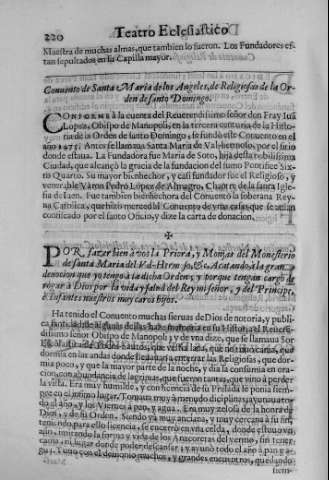 220 Teatro Eclesiastico
Maestra de muchas almas, que tambien lo fueron. Los Fundadores es-
tan sepultados en su Capilla mayor.
Conuento de Santa Maria de los Angeles, de Religiosas de la Or-
den de santo Domingo.
CONFORME à la cuenta del Reuerendissimo señor don Fray Iuā
Lopez, Obispo de Manopoli, en la tercera centuria de la Histo-
ria de la Orden de santo Domingo, se fundò este Conuento en el
donde estaua. La Fundadora fue Maria de Soto, hija desta nobilissima
Ciudad, que alcançò la gracia de la fundacion del sumo Pontifice Six-
to Quarto. Su mayor bienhechor, y casi fundador fue el Religioso, y
venerable Varon Pedro Lopez de Almagro, Chantre de la santa Igle-
sia de Iaen. Fue tambien bienhechora del Conuento la soberana Reyna
Catolica, que hizo merced al Conuento de vnas casas que se auian
confiscado por el santo Oficio, y dize la carta de donacion.
POR fazer bien a vos la Priora, y Monjas del Monesterio
de santa Maria del Val-Hermoso, &c. Acatando à la gran
deuocion que yo tengo à la dicha Orden, y porque tengan cargo de
rogar à Dios por la vida y salud del Rey mi señor, y del Principe,
è Infantes nuestros muy caros hijos.
Ha tenido el Conuento muchas sieruas de Dios de notoria, y publi-
dissimo señor Obispo de Manopoli; y de vna dize, que se llamaua Sor
dormia en las andas donde lleuauan a enterrar las Religiosas, que dor-
mia poco, y que la mayor parte de la noche, y dia la consumia en ora-
cion, con abundancia de lagrimas, que fueron tantas, que vino à perder
la vista. Era muy humilde, y con licencia de su Prelada se ponia siem-
pre en el infimo lugar. Tomaua muy à menudo disciplina, y ayunaua to-
do el año, y los Viernes à pan, y agua. Era muy zelosa de la honra de
Dios, y de su Orden. Siendo ya muy anciana, y muy cercana à su fin,
teniendo para ello licencia, se encerrò en vna celda, donde
tando la forma y vida de los Anacoretas del yermo, sin tener
ni lugar donde poder descansar, y ayunò todo el año à pan y a-
gua. Tuuo con el demonio muchos, y grandes encuentros, quedando
siem-